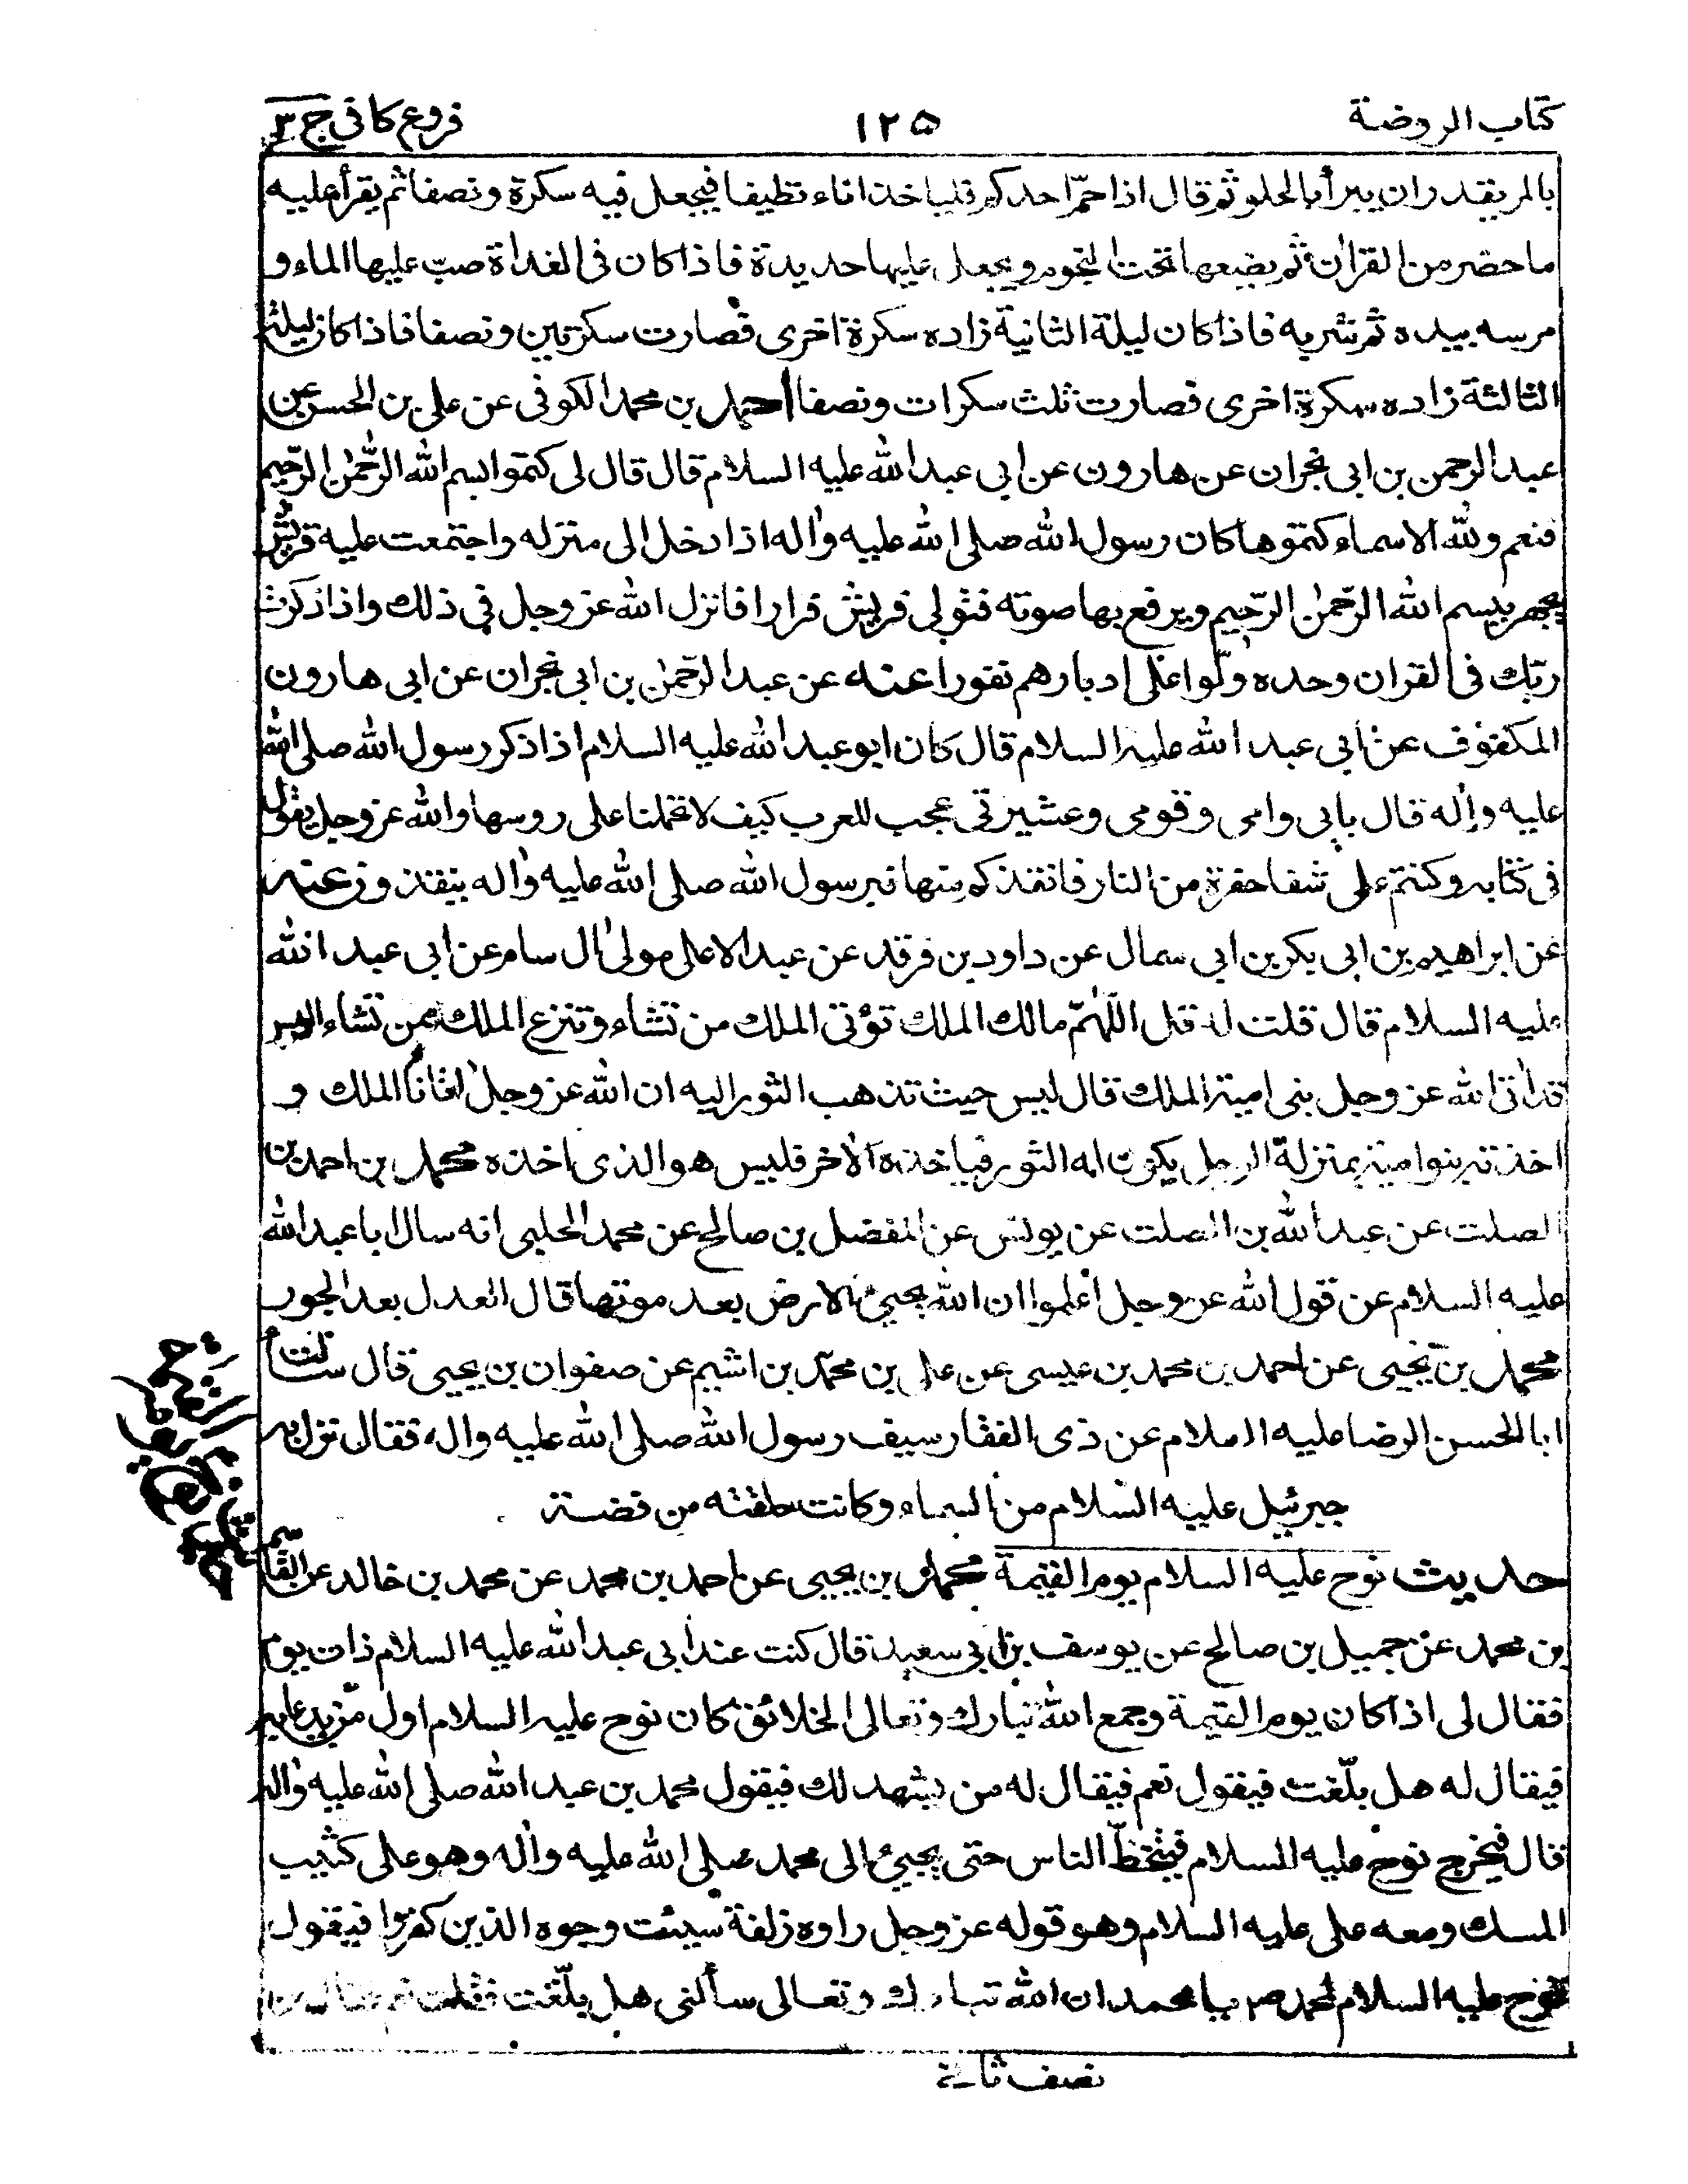 كتاب الروضة ١٢٥ فروع كافى ج ٣
بالمر يقدر ان يبرأ بالحلو ثم قال اذا حمّ احدكم فلياخذ اناء نظيفا فيجعل فيه سكرة ونصفا ثم يقرأ عليه
ما حضر من القران ثم يضعها تحت النجوم ويجعل عليها حديدة فاذا كان فى الغداة صبّ عليها الماء و
مرسه بيده ثم شربه فاذا كان ليلة الثانية زاده سكرة اخرى فصارت سكرتين ونصفا فاذا كان ليلة
الثالثة زاده سكرة اخرى فصارت ثلث سكرات ونصفا احمد بن محمد الكوفى عن على بن الحسن عن
عبد الرحمن بن ابى نجران عن هارون عن ابى عبد الله عليه السلام قال قال لى كتموا بسم الله الرّحمٰن الرّحيم
فنعم والله الاسماء كتموها كان رسول الله صلى الله عليه واٰله اذا دخل الى منزله واجتمعت عليه قريش
يجهر ببسم الله الرّحمٰن الرّحيم ويرفع بها صوته فتولى قريش فرارا فانزل الله عز وجل فى ذلك واذا ذكرت
ربّك فى القران وحده ولّوا على ادبارهم نفورا عنه عن عبد الرّحمٰن بن ابى نجران عن ابى هارون
المكفوف عن ابى عبد الله عليه السلام قال كان ابو عبد الله عليه السلام اذا ذكر رسول الله صلى الله
عليه واٰله قال بابى وامى وقومى وعشيرتى عجب للعرب كيف لا تحملنا على روسها والله عز وجل يقول
فى كتابه وكنتم على شفا حفرة من النار فانقذكم منها فبرسول الله صلى الله عليه واٰله ينقذ وعنه
عن ابراهيم بن ابى بكر بن ابى سمال عن داود بن فرقد عن عبد الاعلى مولى اٰل سام عن ابى عبد الله
عليه السلام قال قلت له قل اللّٰهمّ مالك الملك تؤتى الملك من تشاء وتنزع الملك ممن تشاء اليس
قد اٰتى الله عز وجل بنى امية الملك قال ليس حيث تذهب اليه ان الله عز وجل اٰتانا الملك و
اخذته بنو امية بمنزلة الرجل يكون له الثور فياخذه الاٰخر فليس هو الذى اخذه محمد بن احمد بن
الصلت عن عبد الله بن الصلت عن يونس عن المفضل بن صالح عن محمد الحلبى انه سال ابا عبد الله
عليه السلام عن قول الله عز وجل اعلموا ان الله يحيى الارض بعد موتها قال العدل بعد الجور
محمد بن يحيى عن احمد بن محمد بن عيسى عن على بن محمّد بن اشيم عن صفوان بن يحيى قال سألت
ابا الحسن الرضا عليه السلام عن ذى الفقار سيف رسول الله صلى الله عليه واله فقال نزل به
جبرئيل عليه السلام من السماء وكانت حلقته من فضة
حديث نوح عليه السلام يوم القيمة محمد بن يحيى عن احمد بن محمد عن محمد بن خالد عن القاسم
بن محمد عن جميل بن صالح عن يوسف بن ابى سعيد قال كنت عند ابى عبد الله عليه السلام ذات يوم
فقال لى اذا كان يوم القيمة وجمع الله تبارك وتعالى الخلائق كان نوح عليه السلام اول من يدعا به
فيقال له هل بلّغت فيقول نعم فيقال له من يشهد لك فيقول محمد بن عبد الله صلى الله عليه واٰله
قال فيخرج نوح عليه السلام فيتخطّ الناس حتى يجيئ الى محمد صلى الله عليه واٰله وهو على كثيب
المسك ومعه على عليه السلام وهو قوله عز وجل راوه زلفة سيئت وجوه الذين كفروا فيقول
نوح عليه السلام لمحمد ص يا محمد ان الله تبارك وتعالى سألنى هل بلّغت فقلت نعم
نصف ثانى